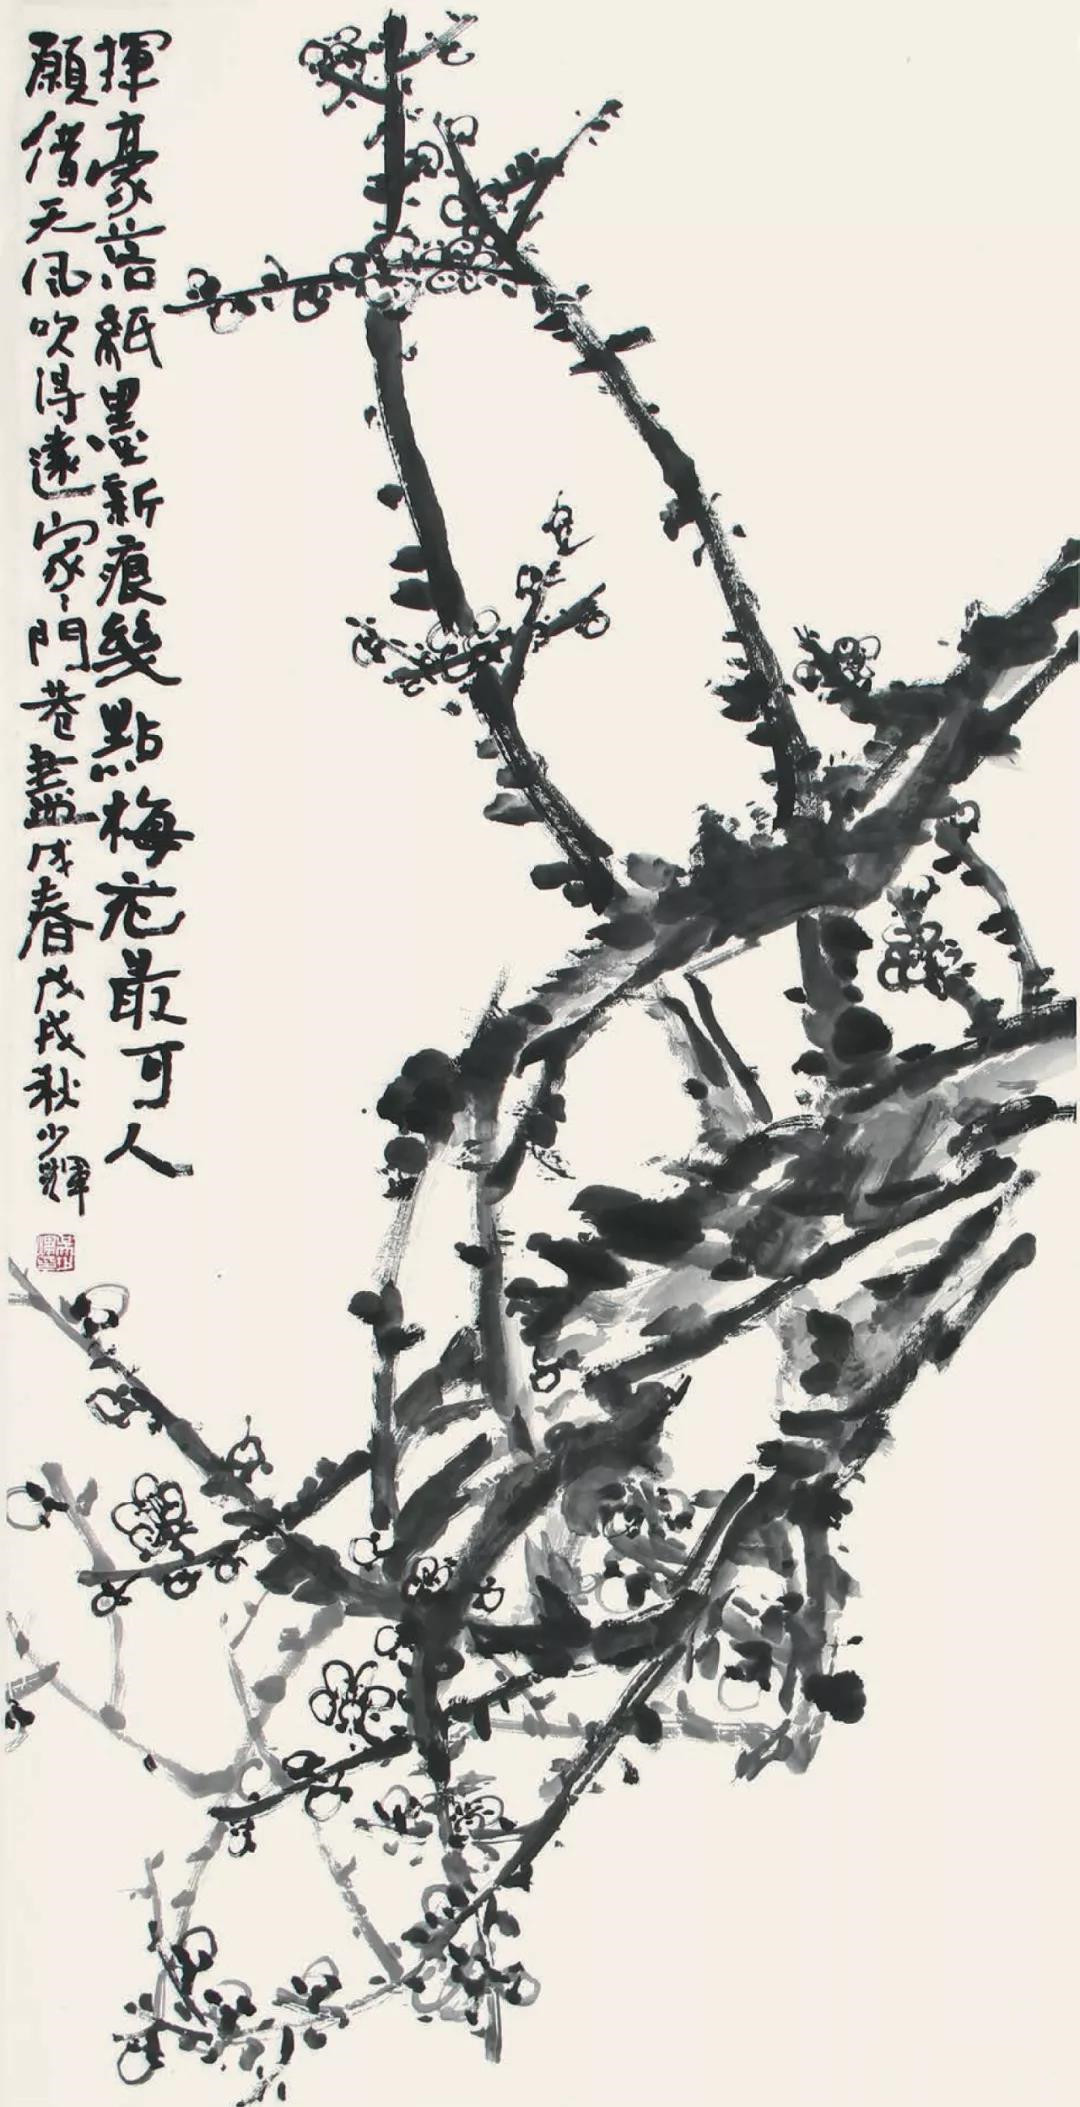 揮豪落紙墨新痕幾點梅花最可人
願借天風吹得遠家〻門巷盡成春戊戌秋少輝